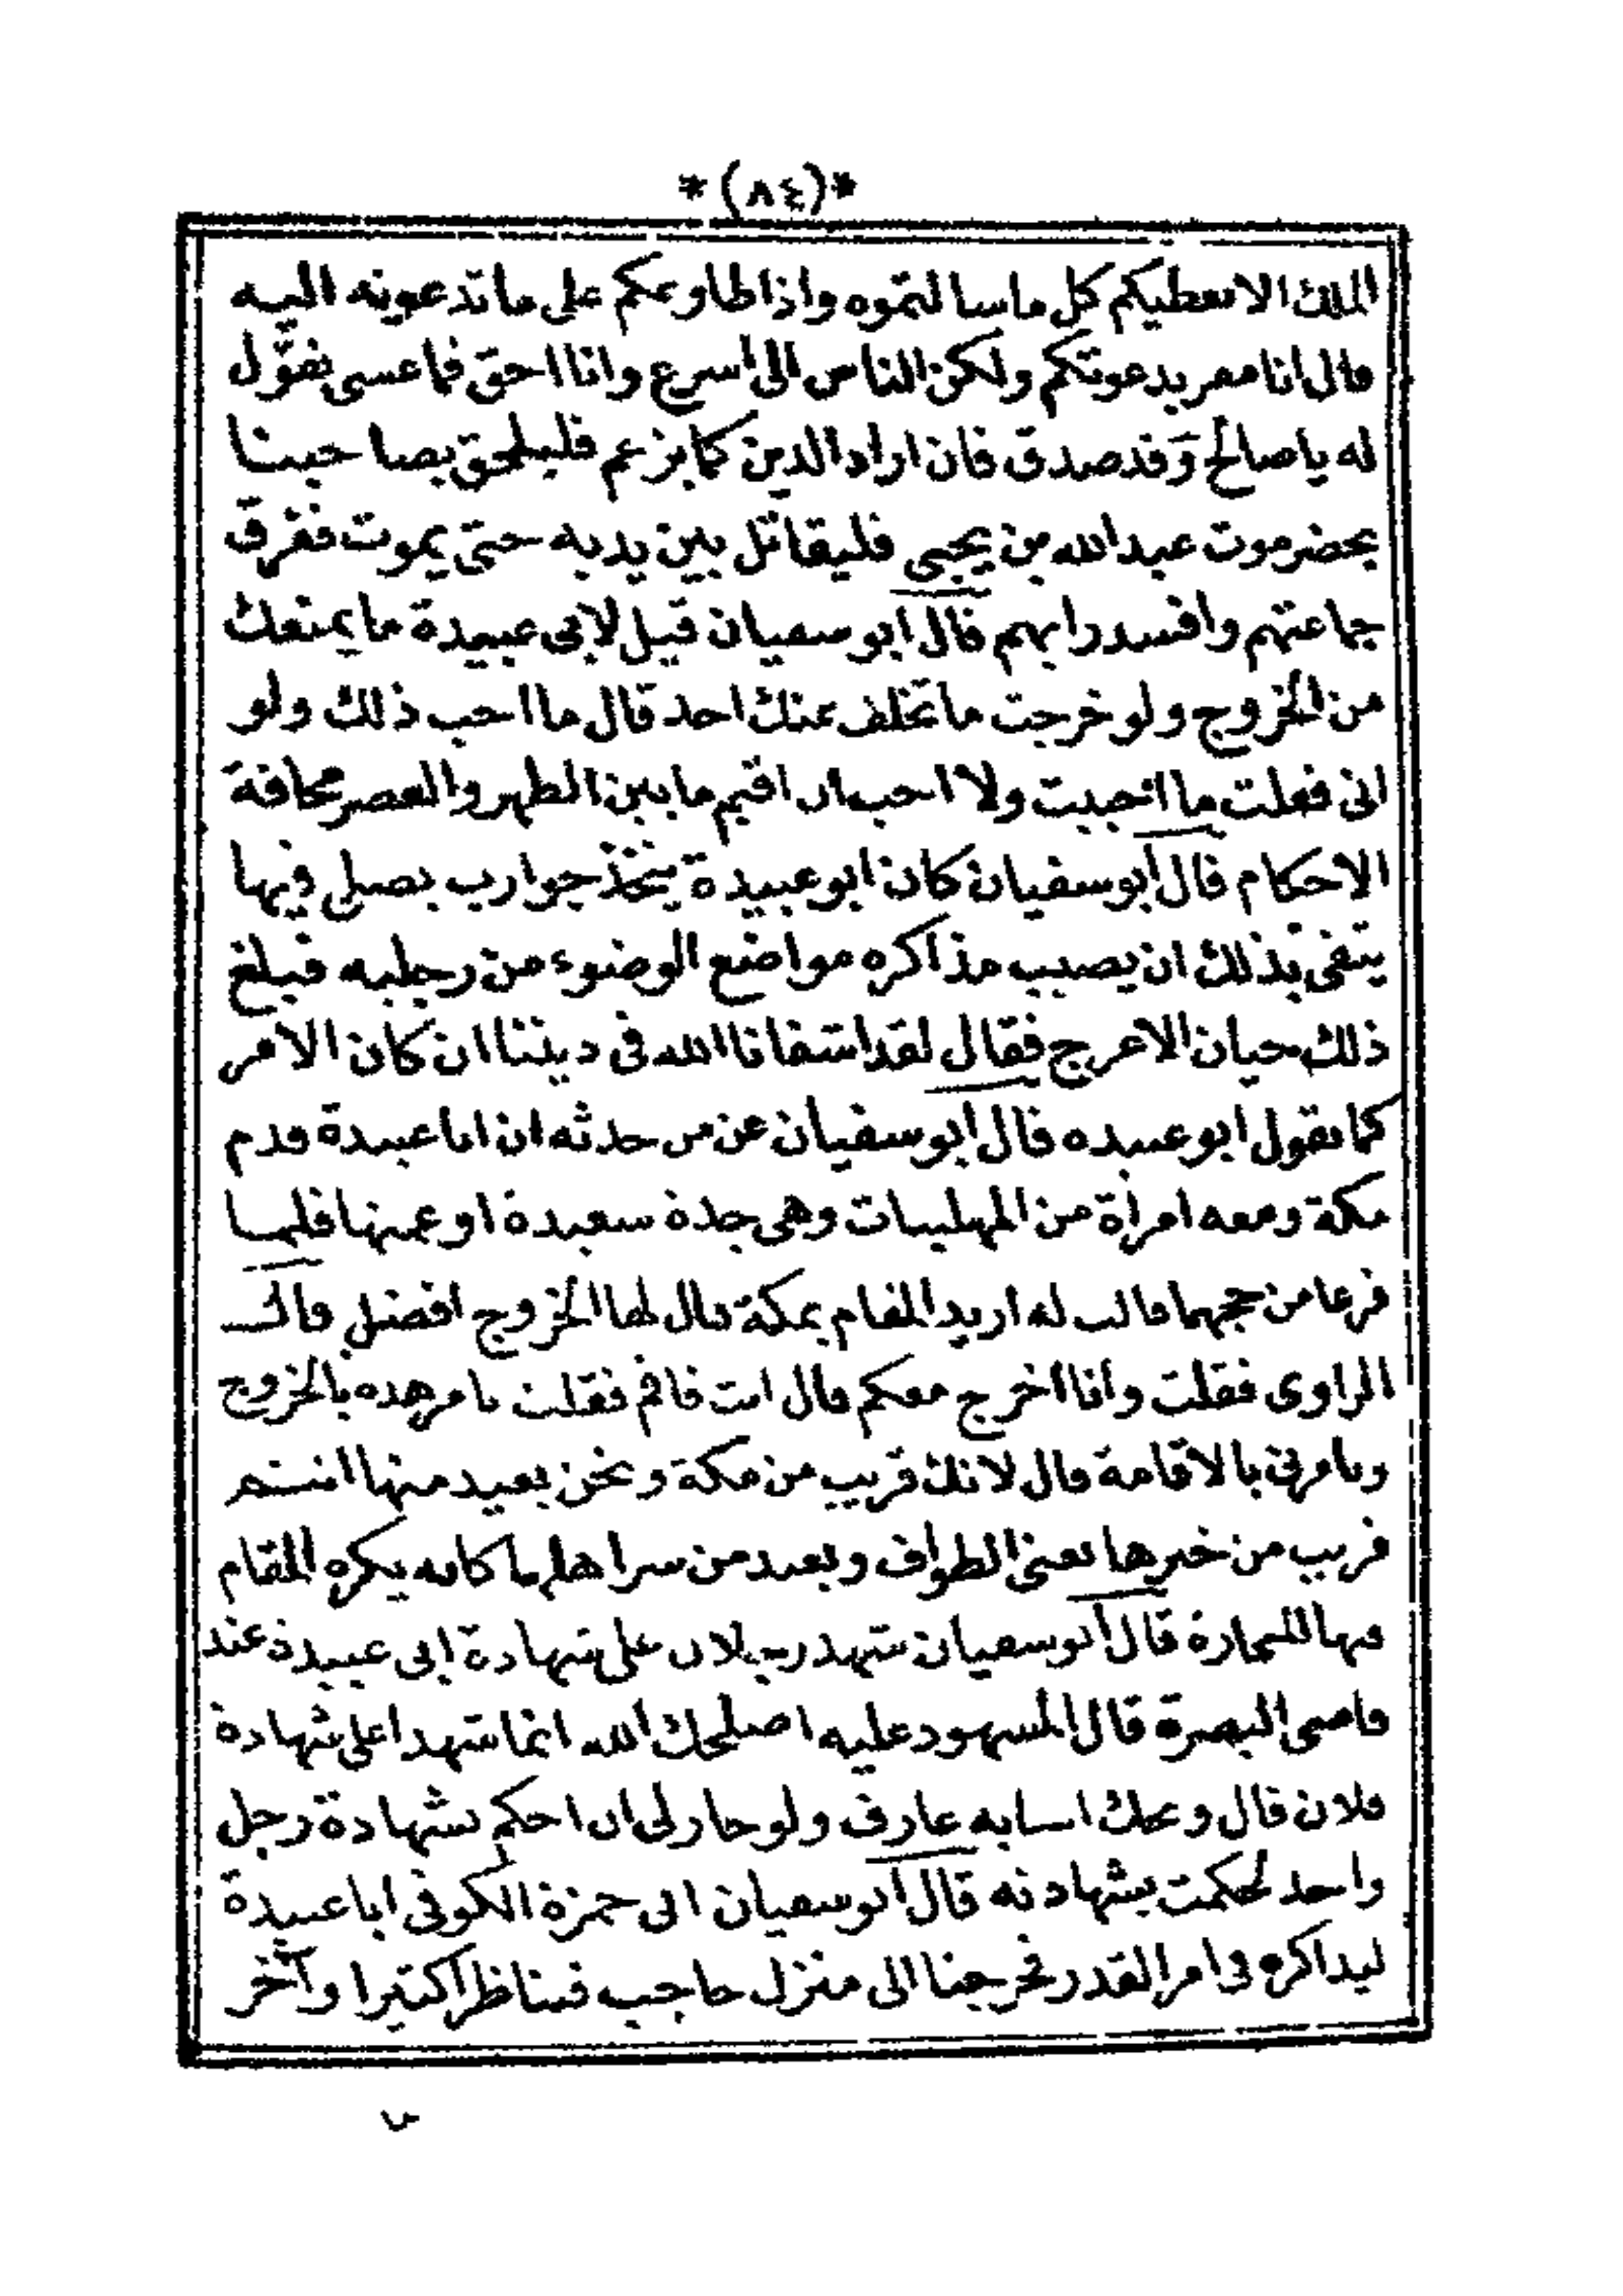 *(٨٤)*
الملك الا يعطيكم كل ما سالتموه واذا طاوعكم على ما تدعونه اليه
قال انا مقر بدعوتكم ولكن الناس الى اسرع وانا احق فما عسى نقول
له يا صالح وقد صدق فان اراد الدين كما يزعم فليلحق بصاحبنا
بحضرموت عبدالله بن يحيى فليقاتل بين يديه حتى يموت ففرق
جماعتهم وافسد رايهم قال ابو سفيان قيل لابى عبيدة ما يمنعك
من الخروج ولو خرجت ما تخلف عنك احد قال ما احب ذلك ولو
انى فعلت ما احببت ولا احب ان اقيم ما بين الظهر والعصر مخافة
الاحكام قال ابو سفيان كان ابو عبيدة يتخذ جوارب يصلى فيها
يتقى بذلك ان يصيب مذاكره مواضع الوضوء من رجليه فبلغ
ذلك حيان الاعرج فقال لقد اشقانا الله فى ديننا ان كان الامر
كما يقول ابو عبيده قال ابو سفيان عن من حدثه ان ابا عبيدة قدم
مكة ومعه امرأة من المهلبيات وهى جدة سعيدة او عمتها فلما
فرغا من حجهما قالت له اريد المقام بمكة قال لها الخروج افضل قال
الراوى فقلت وانا اخرج معكم قال انت فاقم فقلت تامر هذه بالخروج
وتامرنى بالاقامة قال لانك قريب من مكة ونحن بعيد منها انتم
قريب من خيرها يعنى الطواف وبعيد من شر اهلها كانه يكره المقام
فيها للتجارة قال ابو سفيان شهد رجلان على شهادة ابى عبيدة عند
قاضى البصرة قال المشهود عليه اصلحك الله انما شهدا على شهادة
فلان قال ويحك انا به عارف ولو جاز لى ان احكم بشهادة رجل
واحد لحكمت بشهادته قال ابو سفيان اتى حمزة الكوفى ابا عبيدة
ليذاكره فى امر القدر فخرجنا الى منزل حاجب فتناظرا كثيرا وآخر